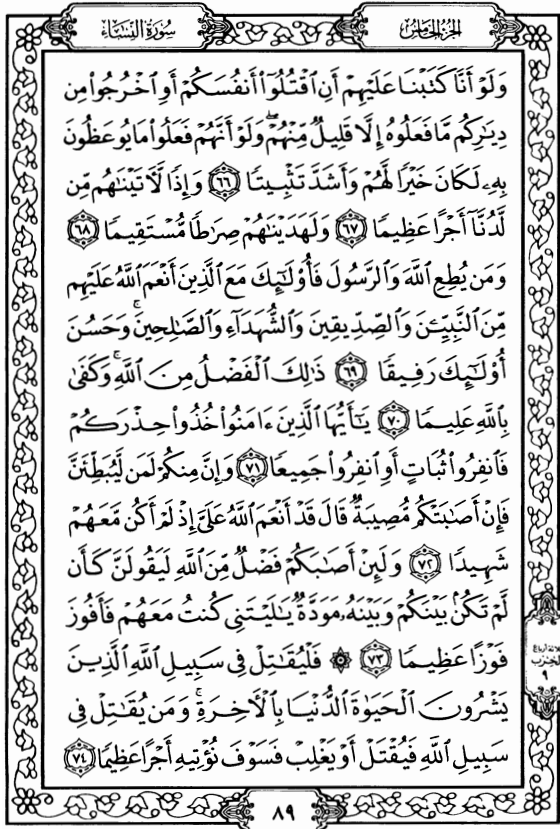 سُورَةُ النِّسَاءِ
الجُزْءُ الخَامِسُ
وَلَوْ أَنَّا كَتَبْنَا عَلَيْهِمْ أَنِ ٱقْتُلُوٓا۟ أَنفُسَكُمْ أَوِ ٱخْرُجُوا۟ مِن
دِيَـٰرِكُم مَّا فَعَلُوهُ إِلَّا قَلِيلٌ مِّنْهُمْ ۖ وَلَوْ أَنَّهُمْ فَعَلُوا۟ مَا يُوعَظُونَ
بِهِۦ لَكَانَ خَيْرًا لَّهُمْ وَأَشَدَّ تَثْبِيتًا ٦٦ وَإِذًا لَّـَٔاتَيْنَـٰهُم مِّن
لَّدُنَّآ أَجْرًا عَظِيمًا ٦٧ وَلَهَدَيْنَـٰهُمْ صِرَٰطًا مُّسْتَقِيمًا ٦٨
وَمَن يُطِعِ ٱللَّهَ وَٱلرَّسُولَ فَأُو۟لَـٰٓئِكَ مَعَ ٱلَّذِينَ أَنْعَمَ ٱللَّهُ عَلَيْهِم
مِّنَ ٱلنَّبِيِّـۧنَ وَٱلصِّدِّيقِينَ وَٱلشُّهَدَآءِ وَٱلصَّـٰلِحِينَ ۚ وَحَسُنَ
أُو۟لَـٰٓئِكَ رَفِيقًا ٦٩ ذَٰلِكَ ٱلْفَضْلُ مِنَ ٱللَّهِ ۚ وَكَفَىٰ
بِٱللَّهِ عَلِيمًا ٧٠ يَـٰٓأَيُّهَا ٱلَّذِينَ ءَامَنُوا۟ خُذُوا۟ حِذْرَكُمْ
فَٱنفِرُوا۟ ثُبَاتٍ أَوِ ٱنفِرُوا۟ جَمِيعًا ٧١ وَإِنَّ مِنكُمْ لَمَن لَّيُبَطِّئَنَّ
فَإِنْ أَصَـٰبَتْكُم مُّصِيبَةٌ قَالَ قَدْ أَنْعَمَ ٱللَّهُ عَلَىَّ إِذْ لَمْ أَكُن مَّعَهُمْ
شَهِيدًا ٧٢ وَلَئِنْ أَصَـٰبَكُمْ فَضْلٌ مِّنَ ٱللَّهِ لَيَقُولَنَّ كَأَن
لَّمْ تَكُنۢ بَيْنَكُمْ وَبَيْنَهُۥ مَوَدَّةٌ يَـٰلَيْتَنِى كُنتُ مَعَهُمْ فَأَفُوزَ
فَوْزًا عَظِيمًا ٧٣ ۞ فَلْيُقَـٰتِلْ فِى سَبِيلِ ٱللَّهِ ٱلَّذِينَ
يَشْرُونَ ٱلْحَيَوٰةَ ٱلدُّنْيَا بِٱلْـَٔاخِرَةِ ۚ وَمَن يُقَـٰتِلْ فِى
سَبِيلِ ٱللَّهِ فَيُقْتَلْ أَوْ يَغْلِبْ فَسَوْفَ نُؤْتِيهِ أَجْرًا عَظِيمًا ٧٤
أرباع
الحزب
٩
٨٩